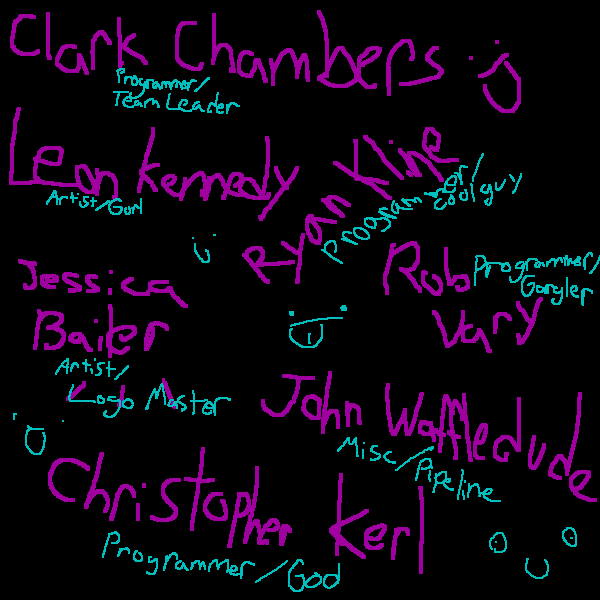 Clark Chambers
Programmer/
Team Leader
Leon Kennedy
Artist/Gurl
Ryan Kline
Programmer/
coolguy
Jessica
Bailer
Artist/
Logo Master
Rob
Vary
Programmer/
Gorgler
John Waffledude
Misc/Pipeline
Christopher Kerl
Programmer/God